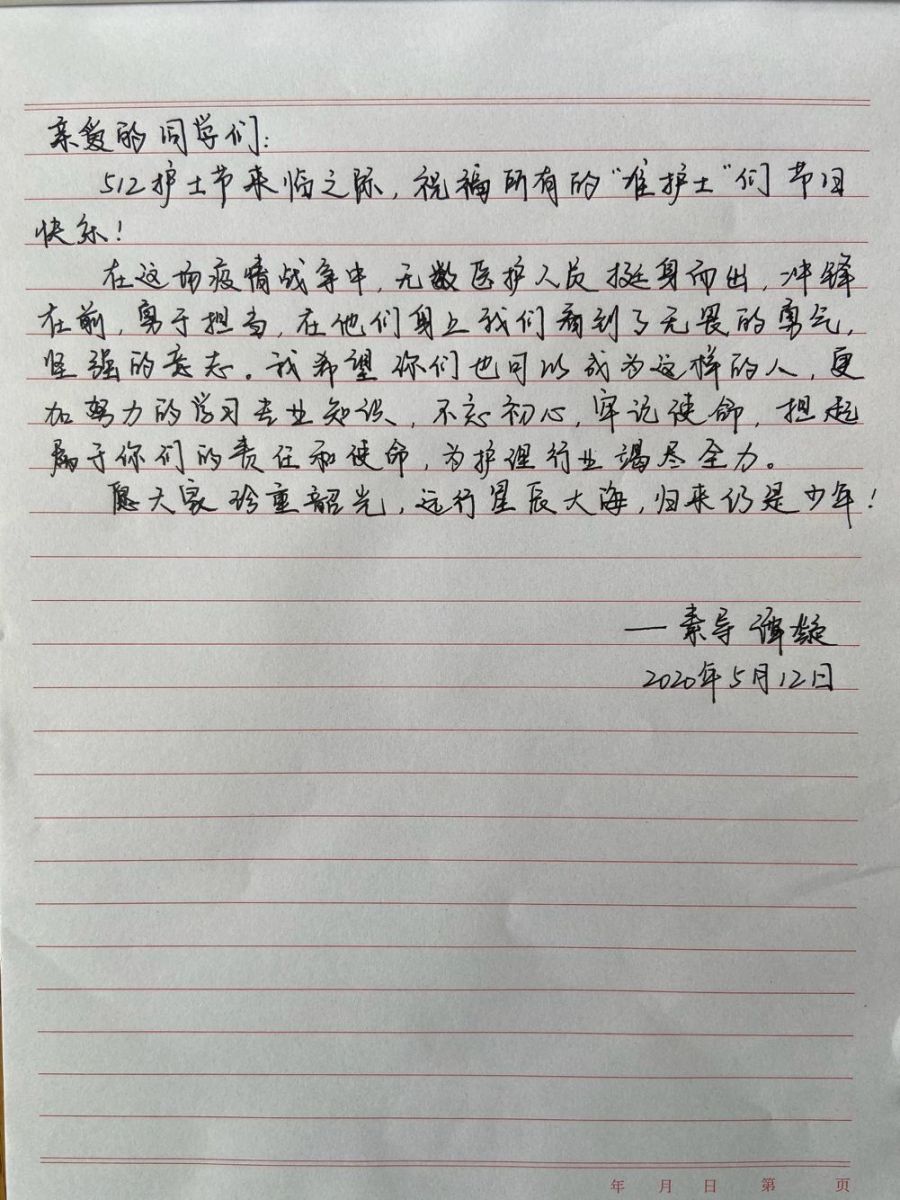 亲爱的同学们:
512护士节来临之际,祝福所有的“准护士”们节日
快乐!
在这场疫情战争中,无数医护人员挺身而出,冲锋
在前,勇于担当,在他们身上我们看到了无畏的勇气,
坚强的意志。我希望你们也可以成为这样的人,更
加努力的学习专业知识、不忘初心,牢记使命,担起
属于你们的责任和使命,为护理行业竭尽全力。
愿大家珍重韶光,远行星辰大海,归来仍是少年!
—素导 谭
2020年5月12日
年 月 日 第 页